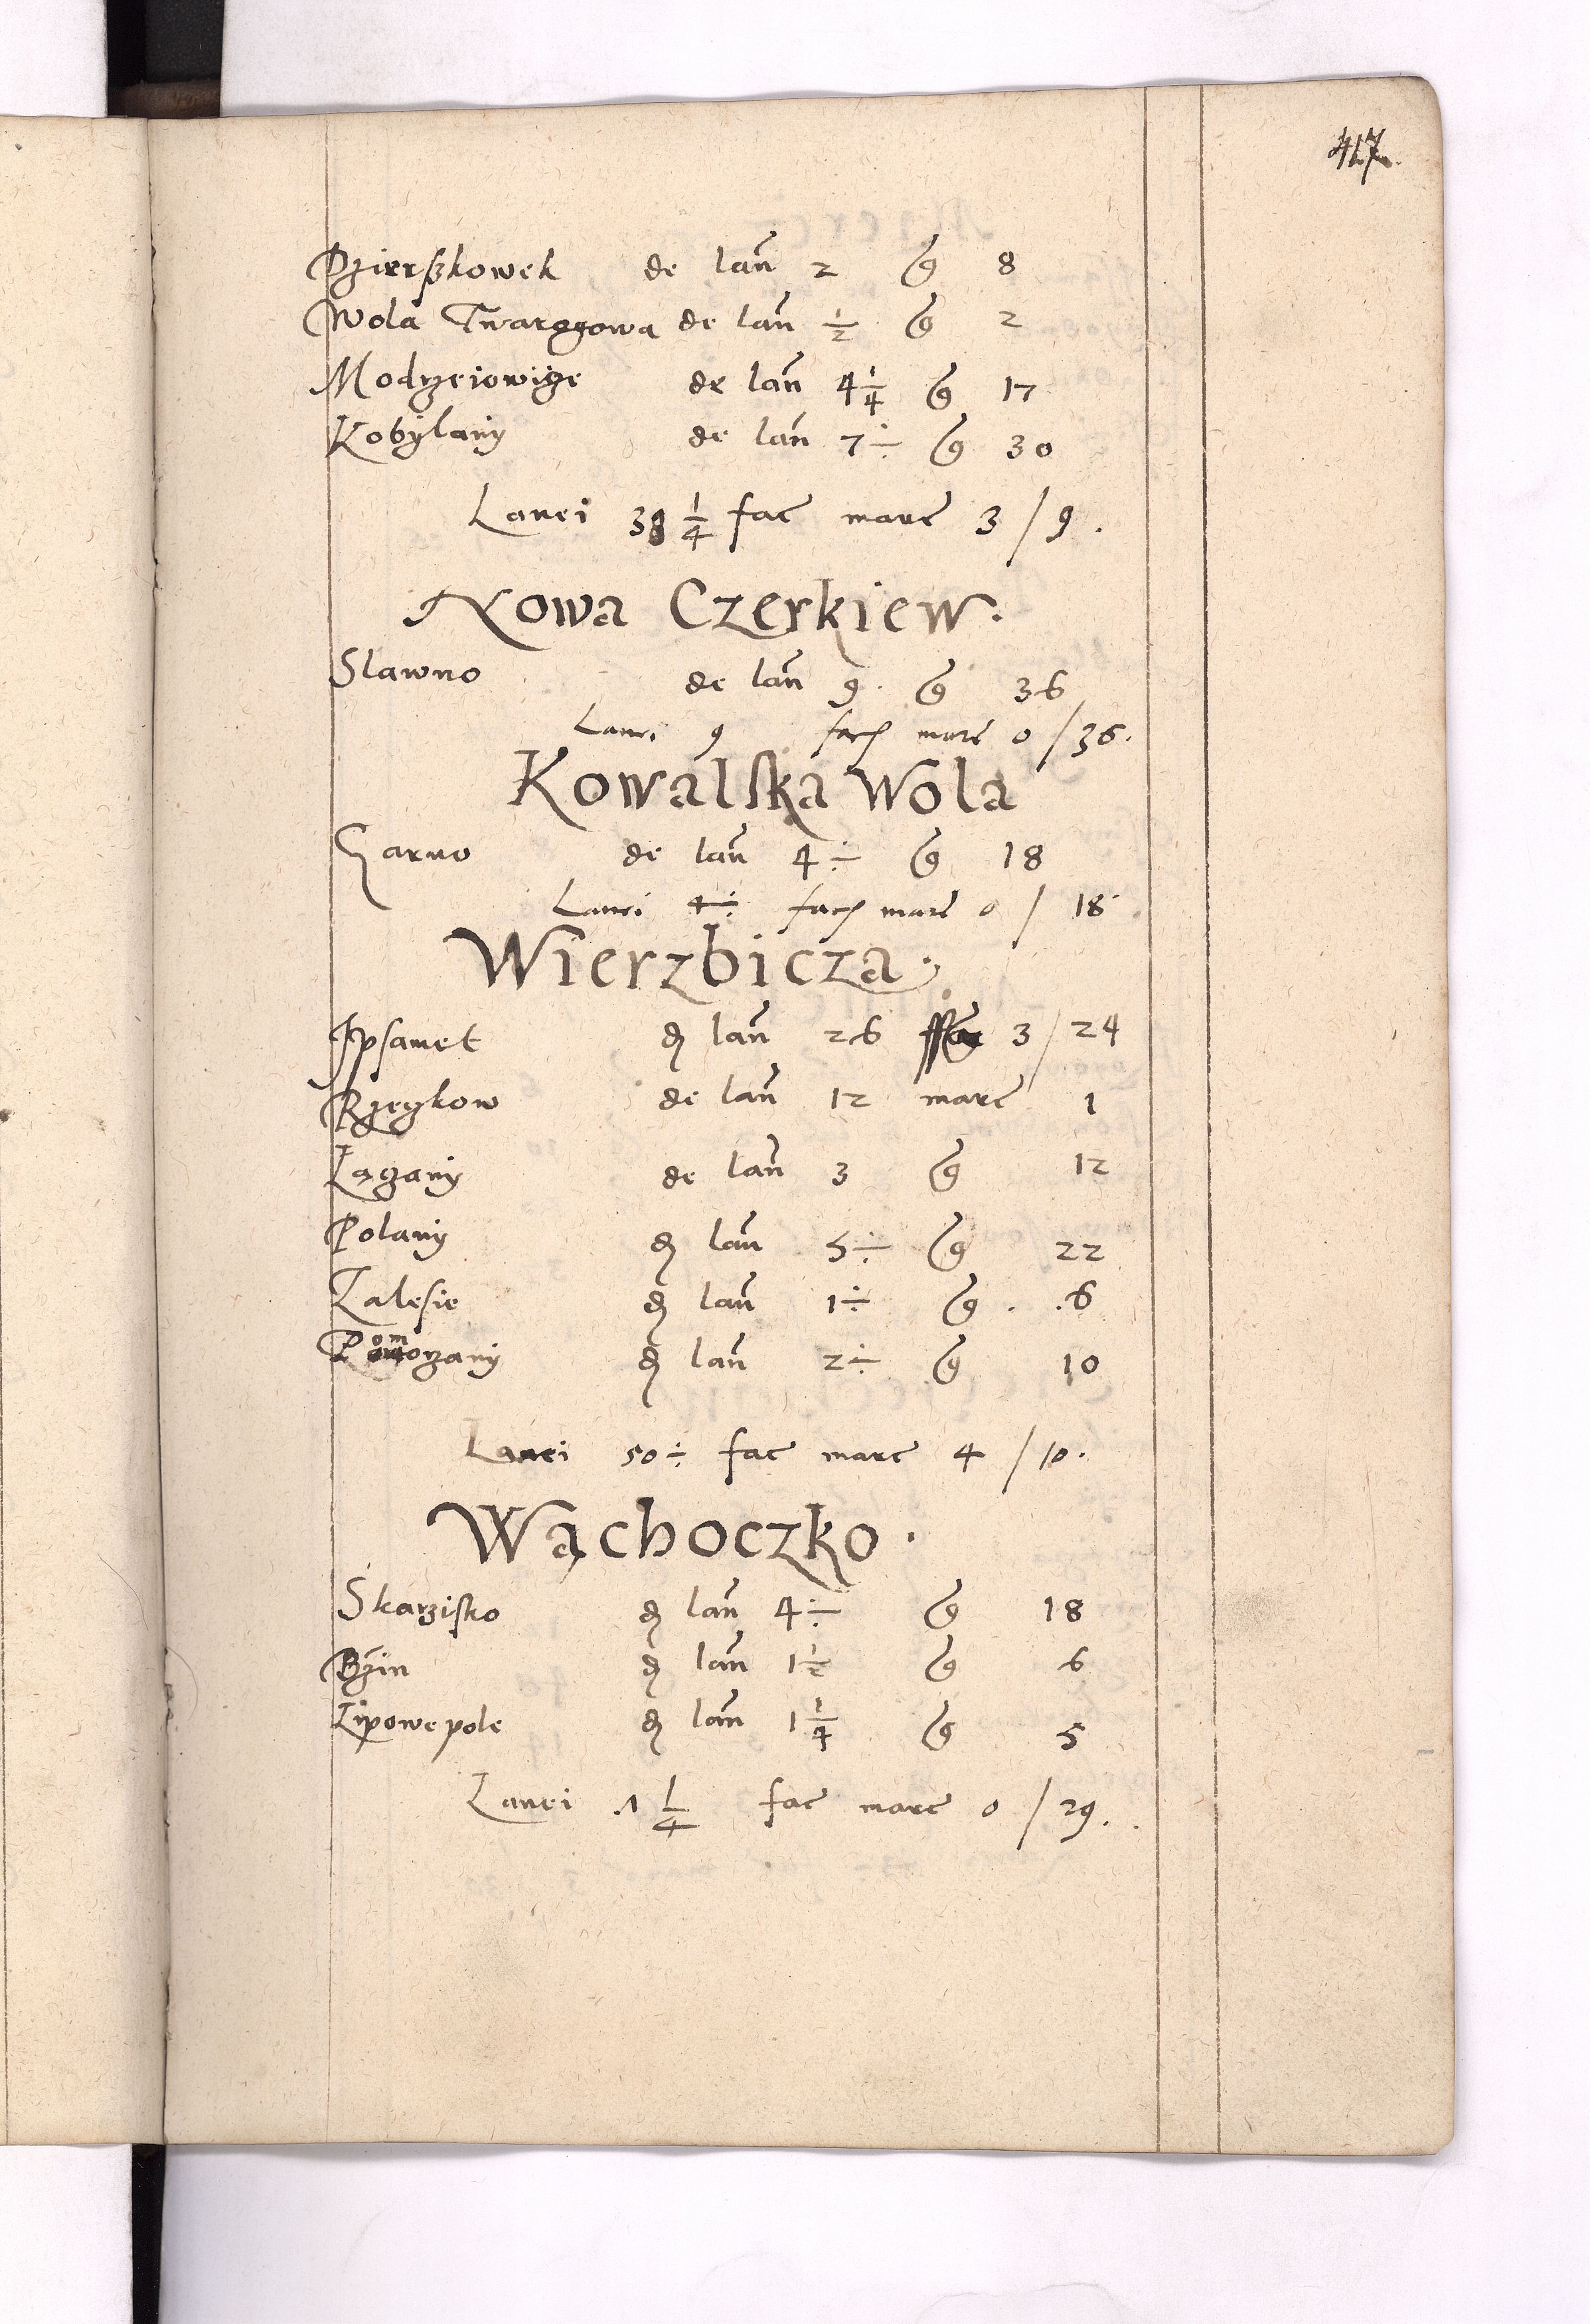 417.
Dzierszkowek de lan̄ 2 g 8
Wola Twarogowa de lan̄ 1/2 g 2
Modrzeiowice de lan̄ 4 1/4 g 17
Kobÿlanÿ de lan̄ 7 ÷ g 30
Lanei 38 1/4 fac marc 3 / 9.
Nowa Czerkiew.
Slawno de lan̄ 9. g 36
Lanei 9 fac marc 0 / 36.
Kowalska Wola
Garno de lan̄ 4 ÷ g 18
Lanei 4 ÷ fac marc 0 / 18
Wierzbicza.
Ipsamet de lan̄ 26 3 / 24
Rzeczkow de lan̄ 12 marc 1
Łączanÿ de lan̄ 3 g 12
Polanÿ de lan̄ 5 ÷ g 22
Zalesie de lan̄ 1 ÷ g . .6
Pomorzanÿ de lan̄ 2 ÷ g 10
Lanei 50 ÷ fac marc 4 / 10.
Wąchoczko.
Skarzisko de lan̄ 4 ÷ g 18
Bzin de lan̄ 1 1/2 g 6
Lipowe pole de lan̄ 1 1/4 g 5
Lanei .1 1/4 fac marc 0 / 29.